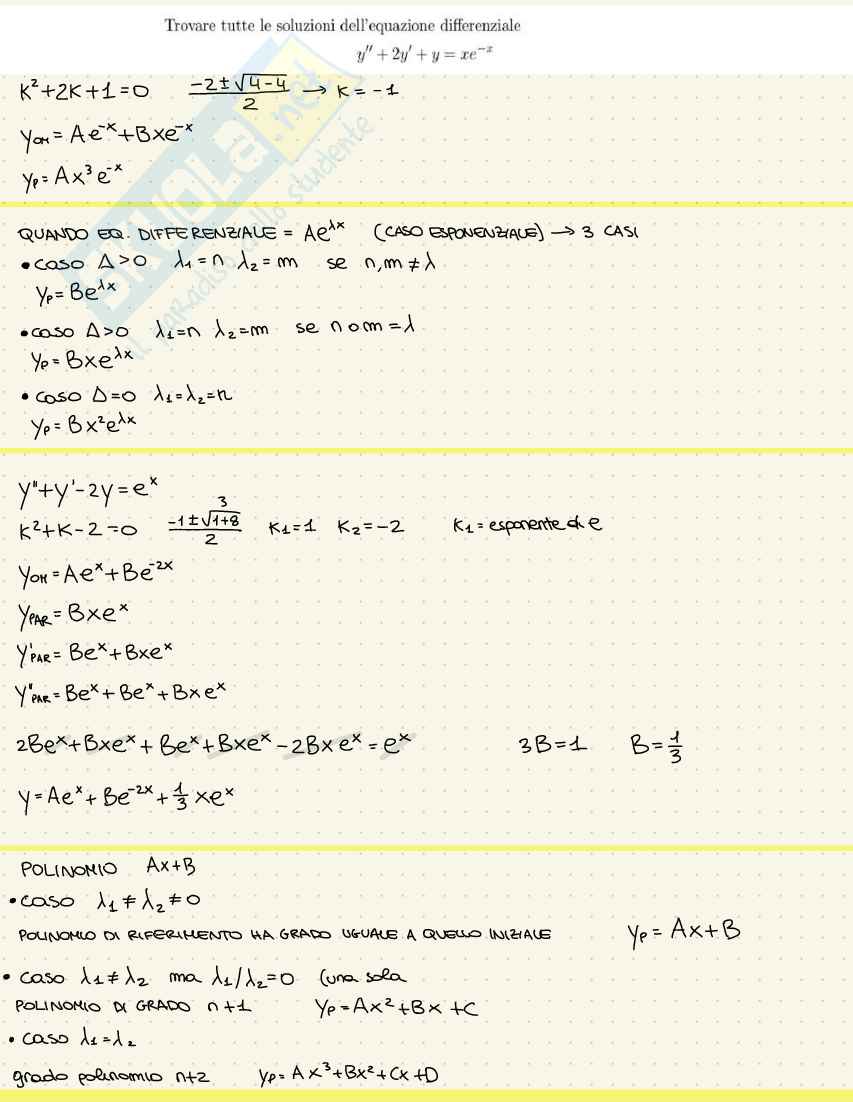 Trovare tutte le soluzioni dell'equazione differenziale
y'' + 2y' + y = xe^{-x}
K²+2K+1=0 (-2±√(4-4))/2 → K=-1
y_{OM} = Ae^{-x}+Bxe^{-x}
y_P = Ax³e^{-x}
SKUOLA.net
il paradiso dello studente
QUANDO EQ. DIFFERENZIALE = Ae^{λx} (CASO ESPONENZIALE) → 3 CASI
• CASO Δ>0 λ₁=n λ₂=m se n,m ≠ λ
y_P = Be^{λx}
• CASO Δ>0 λ₁=n λ₂=m se n o m = λ
y_P = Bxe^{λx}
• CASO Δ=0 λ₁=λ₂=n
y_P = Bx²e^{λx}
y''+y'-2y=e^x
3
K²+K-2=0 (-1±√(1+8))/2 K₁=1 K₂=-2 K₁=esponente di e
y_{OM} = Ae^x+Be^{-2x}
y_{PAR} = Bxe^x
y'_{PAR} = Be^x+Bxe^x
y''_{PAR} = Be^x+Be^x+Bxe^x
2Be^x+Bxe^x+Be^x+Bxe^x-2Bxe^x=e^x 3B=1 B=1/3
y=Ae^x+Be^{-2x}+1/3 xe^x
POLINOMIO Ax+B
• CASO λ₁≠λ₂≠0
POLINOMIO DI RIFERIMENTO HA GRADO UGUALE A QUELLO INIZIALE y_P = Ax+B
• CASO λ₁≠λ₂ ma λ₁/λ₂=0 (una sola
POLINOMIO DI GRADO n+1 y_P=Ax²+Bx+C
• CASO λ₁=λ₂
grado polinomio n+2 y_P=Ax³+Bx²+Cx+D